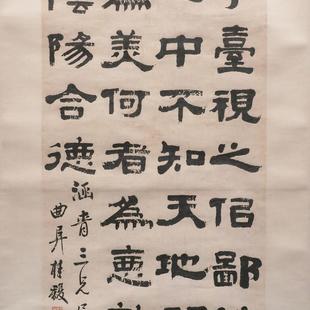 臺視之佀鄙
中不知天地
美何者為惡
陰陽合德
涵青三兄
曲阜桂馥